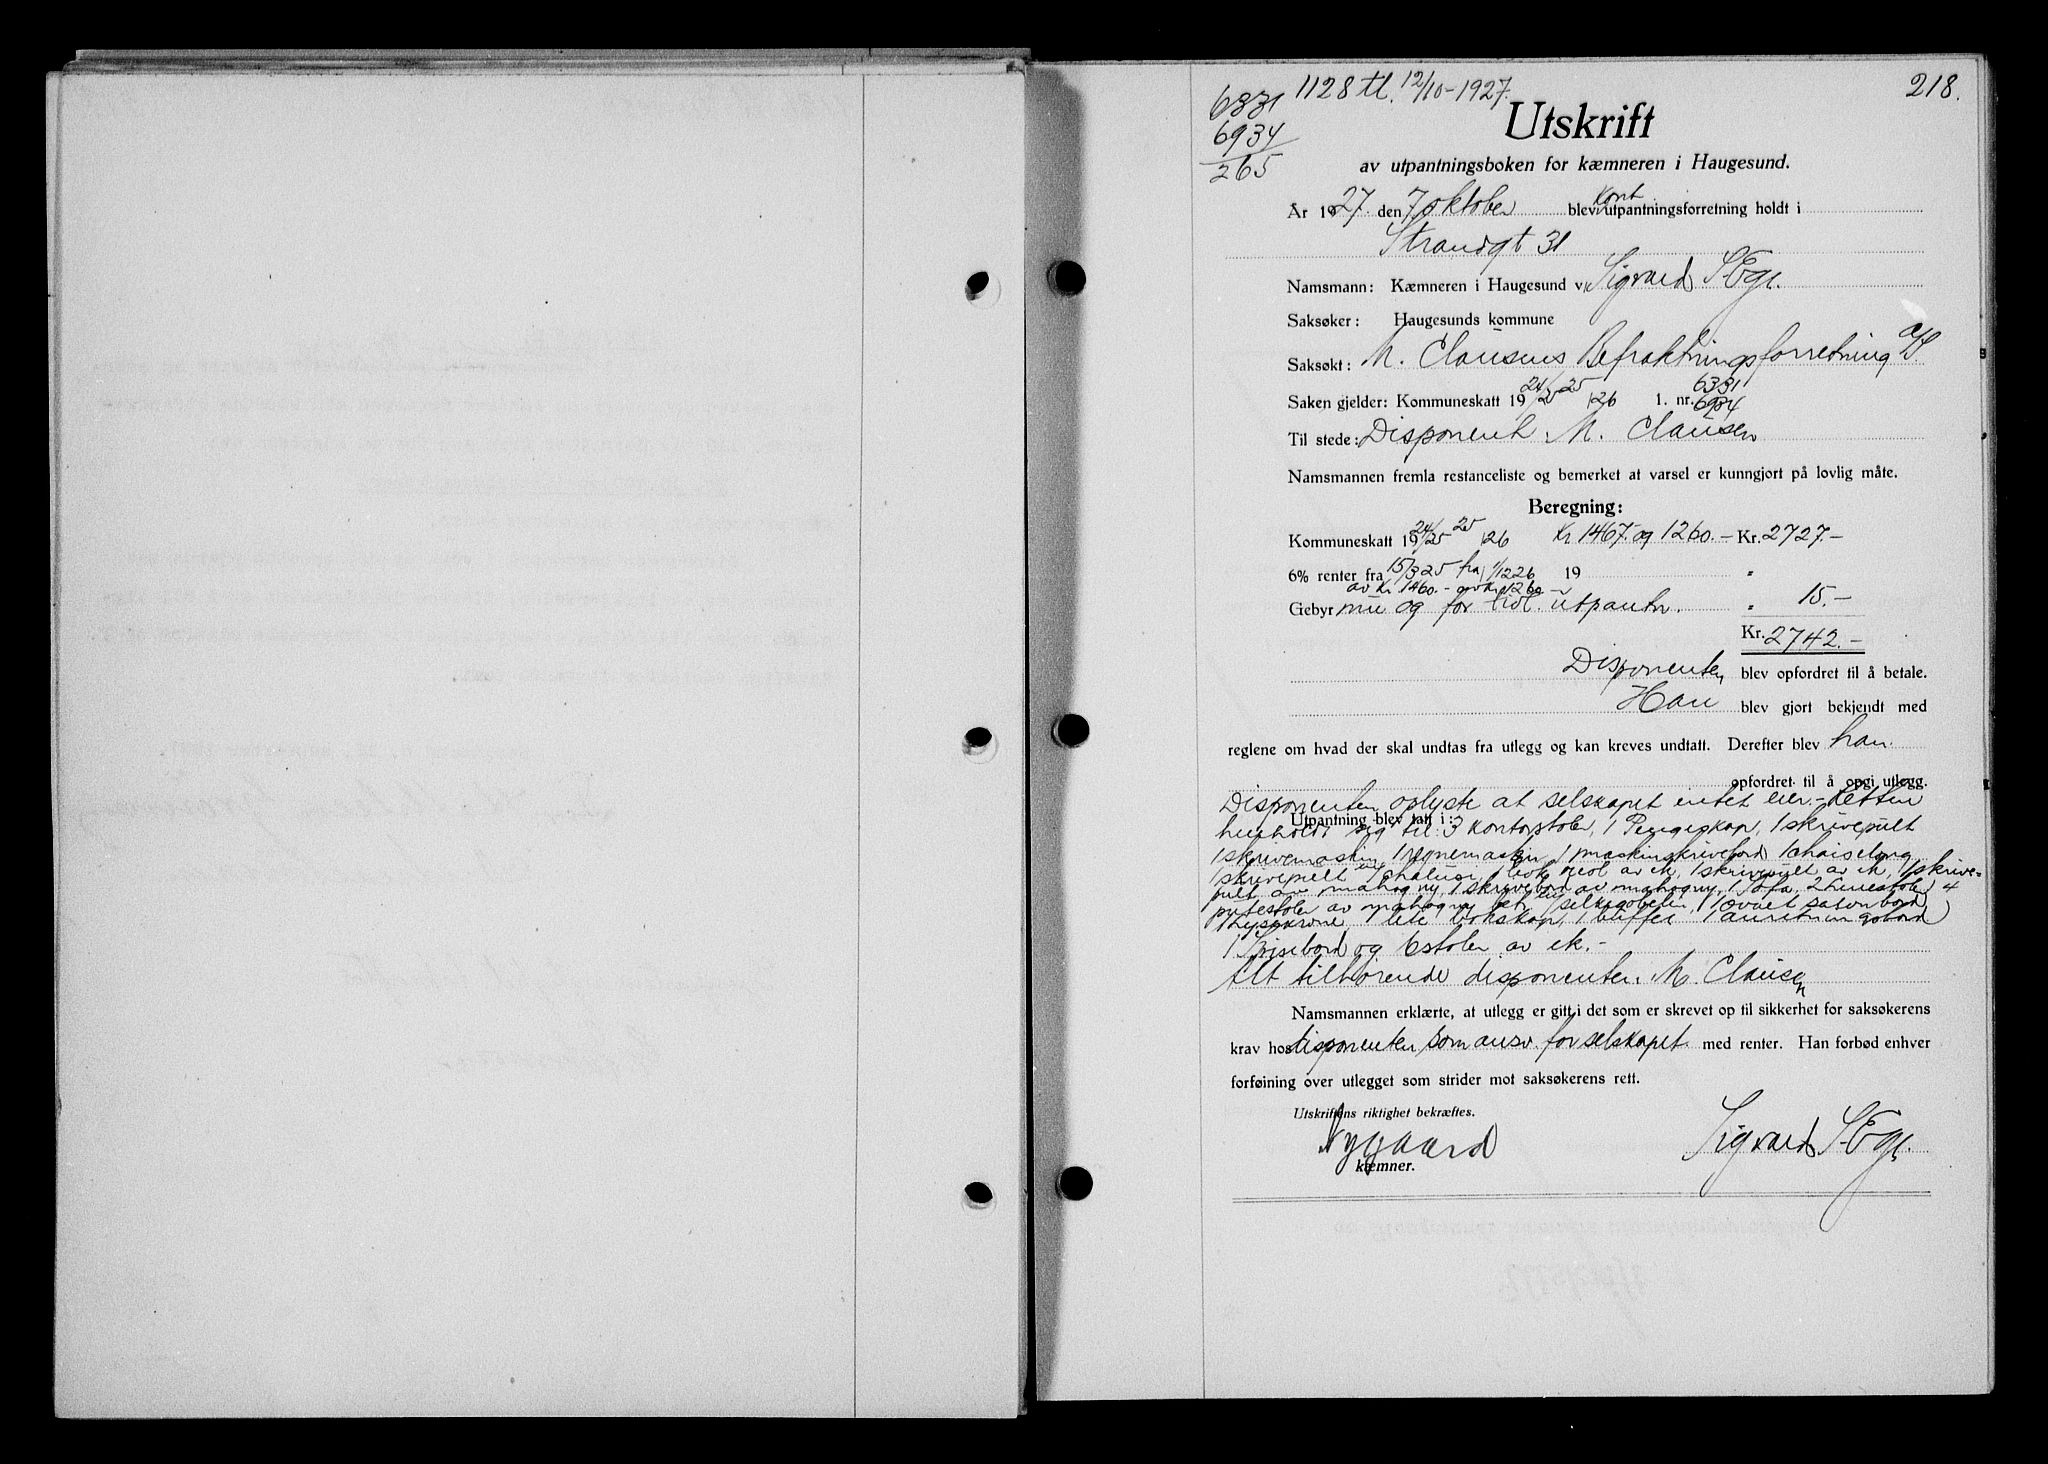 1128 tl. 12/10-1927.
218.
6331
6934
265
Utskrift
av utpantningsboken for kæmneren i Haugesund.
År 1927. den 7 oktober blev kont utpantningsforretning holdt i
Strandgt 31
Namsmann: Kæmneren i Haugesund v. Sigvard
Saksøker: Haugesunds kommune
Saksøkt: M. Clausens Befraktningsforretning A/S
Saken gjelder: Kommuneskatt 19 24/25 25/26 1. nr. 6331 6934
Til stede: Disponent M. Clausen
Namsmannen fremla restanceliste og bemerket at varsel er kunngjort på lovlig måte.
Beregning:
Kommuneskatt 19 24/25 25/26 Kr 1467.- og 1260.- Kr. 2727.-
6% renter fra 15/3 25 fra 1/12 26 19 "
av Kr 1460.- av Kr 1260.-
Gebyr nu og for tidl. utpantn. " 15.-
Kr. 2742.-
Disponenten blev opfordret til å betale.
Han blev gjort bekjendt med
reglene om hvad der skal undtas fra utlegg og kan kreves undtatt. Derefter blev han
opfordret til å opgi utlegg.
Disponenten oplyste at selskapet intet eier.- Retten
Utpantning blev tatt i:
henholdt sig til 3 kontorstoler, 1 Pengeskap, 1 skrivepult
1 skrivemaskin, 1 regnemaskin, 1 maskinskrivebord 1 chaiselong
1 skrivepult 1 bok reol av ek, 1 skrivepult av ek, 1 skrive-
pult av mahogny, 1 skrivebord av mahogny, 1 Sofa, 2 lenestoler, 4
putestoler av mahogny 1 ovalt salonbord
1 lysekrone, 1 lite bokskap, 1 buffet 1 anretningsbord
1 spisebord og 6 stoler av ek.-
Alt tilhørende disponenten M. Clausen
Namsmannen erklærte, at utlegg er gitt i det som er skrevet op til sikkerhet for saksøkerens
krav hos disponenten som ansv. for selskapet med renter. Han forbød enhver
forføining over utlegget som strider mot saksøkerens rett.
Utskriftens riktighet bekræftes.
Nygaard
Sigvard
kæmner.